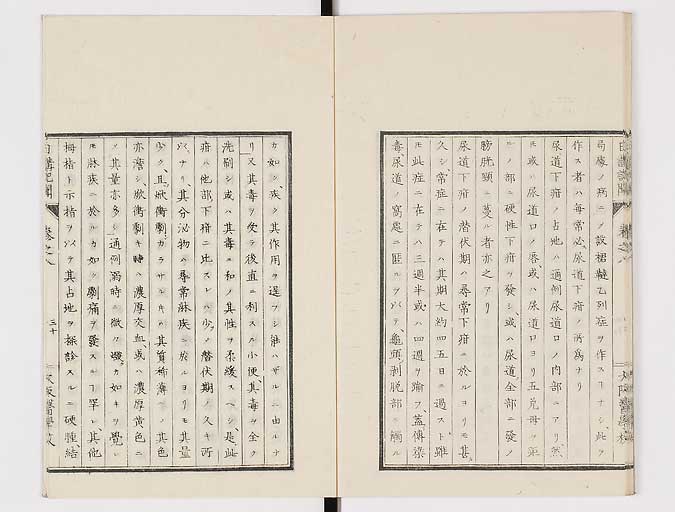 局處ノ病ニノ設楷韃乙列症ヲ作スヿナシ、此ヲ
作ス者ハ毎常必、尿道下疳ノ所爲ナリ
尿道下疳ノ占地ハ通例尿道口ノ内部ニアリ、然
ルニ或ハ尿道口ノ唇或ハ尿道口ヨリ五
ルノ部ニ硬性下疳ヲ發シ或ハ尿道全部ニ發ノ
膀胱頸ニ蔓ル者亦之アリ
尿道下疳ノ潜伏期ハ尋常下疳ニ於ルヨリモ甚
久シ、常症ニ在テハ其期大約四五日ニ過スト雖
モ此症ニ在テハ三週半或ハ四週ヲ踰フ、蓋傳染
毒尿道ノ窩處ニ匿ルヲ以テ、龜頭剥脱部ニ觸ル
カ如ク、疾ク其作用ヲ逞フシ能ハザルニ由ルナ
リ又其毒ヲ受ケ後直ニ利スル小便、其毒ヲ全ク
洗刷シ或ハ其毒ニ和ノ其性ヲ柔緩スベシ是、此
疳ハ他部下疳ニ比スレハ、少ノ潜伏期ノ久キ所
以ナリ其分泌物ハ尋常淋疾ニ於ルヨリモ其量
少ク、且、焮衝劇カラサルキハ其質稀薄ニノ其色
亦澹シ、焮衝劇キ時ハ濃厚交血、或ハ濃厚黄色ニ
ノ其量亦多シ、通例溺時ニ微ク爛カ如キヲ覺レ
モ淋疾ニ於ルカ如ク劇痛ヲ發スルヿ罕シ、其他
拇指ト示指ヲ以テ其占地ヲ探診スルニ硬腫、結
卷之八
三十
大阪醫學校